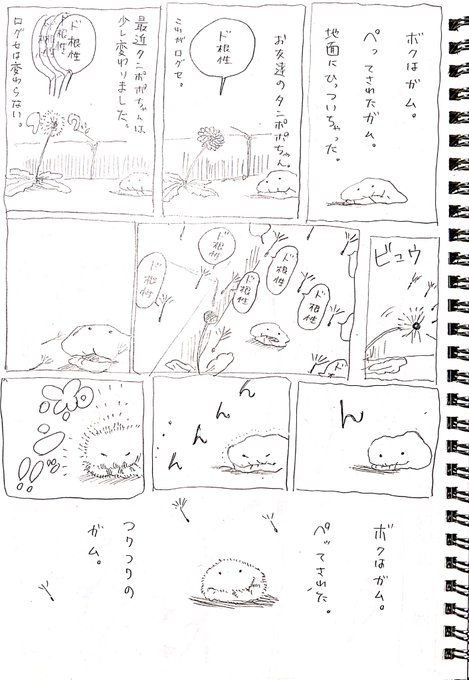 ボクはガム。
ペッてされたガム。
地面にひっついちゃった。
お友達のタンポポちゃん。
ド根性
これがログセ。
最近タンポポちゃんは
少し変わりました。
ド根性
ログセは変わらない。
ビュウ
ド根性
ド根性
ド根性
ド根性
ド根性
ん
ん
ん
ん
ん
ボクはガム。
ペッてされた。
つりつりの
ガム。